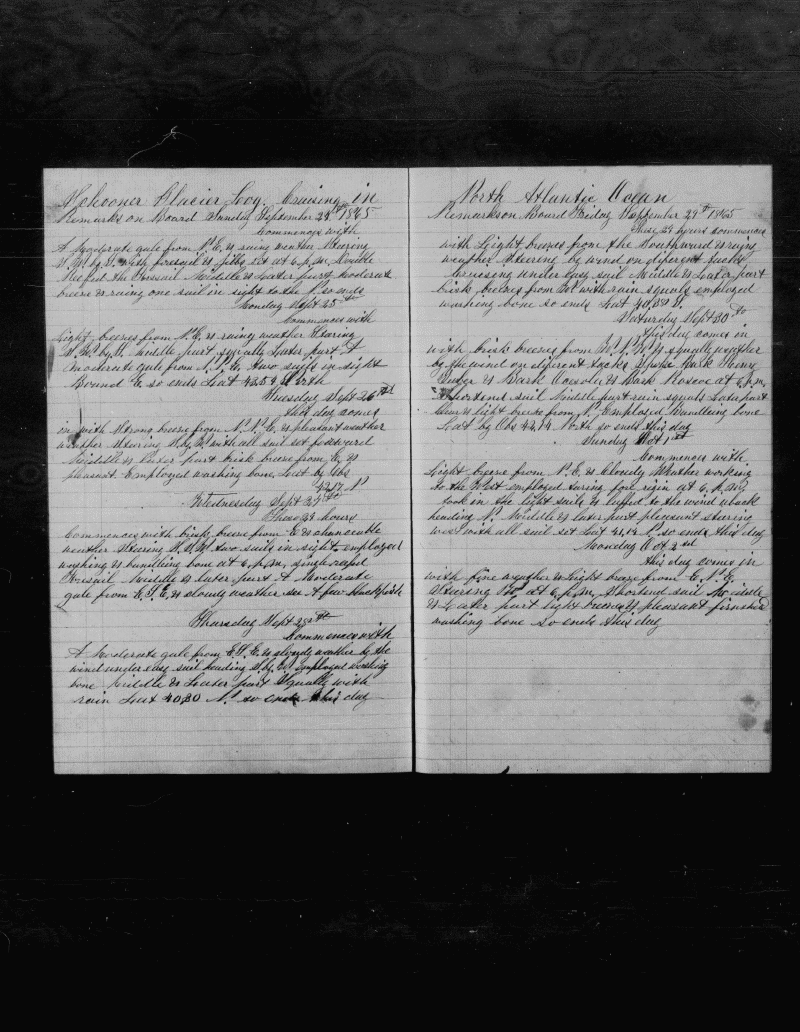 Schooner Glacier Log. Cruising in
Remarks on Board Sunday September 24th 1865
Commences with
A Moderate gale from N.E. & raing weather Stearing
W. by S. with foresail & jib set at 6 p.m. Double
Reefed the Foresail Middle & Later part Moderate
breeze & raing one sail in sight to the N. so ends
Monday Sept 25th
Commences with
Light breezes from N.E. & raing weather Stearing
by S. Middle part squally Later part A
Moderate gale from N.N.E. two sails in sight
Bound E so ends Lat 42.59 North
Tuesday Sept 26th
this day comes
in with Strong breeze from N.N.E. & pleasant weather
weather Stearing S. by W. with all sail set forward
Middle & Later part brisk breeze from E. &
pleasent Employed washing bone. Lat by Obs
42.17 N
Wednesday Sept 27th
These 24 hours
Commences with brisk breeze from E & changeable
weather Stearing two sails in sight employed
washing & bundling bone at 6 p.m. single reefed
Foresail Middle & Later part A Moderate
gale from E.S.E. & cloudy weather saw A few blackfish
Thursday Sept 28th
Commences with
A Moderate gale from E.S.E. & cloudy weather by the
wind under easy sail heading S. by W. employed washing
bone Middle & Later part Squally with
rain Lat 40.30 N. so ends this day
North Atlantic Ocean
Remarks on Board Friday September 29th 1865
These 24 hours commences
with Light breezes from the Southward & raing
weather Stearing by wind on diferent tacks
Cruising under easy sail Middle & Later part
brisk breezes from with rain squals employed
washing bone so ends Lat 40.30 N.
Saturday Sept 30th
this day comes in
with brisk breezes from W.N.W. & squally weather
by the wind on diferent tackes Spoke Bark Henry
& Bark & Bark Roscoe at 6 p.m.
Shortend sail Middle part rain squals Later part
clear & light breeze from N. Employed Bundleing bone
Lat by Obs 42.14 North so ends this day
Sunday Oct 1st
Commences with
Light breeze from N.E. & Cloudy Whether working
to the West employed taring fore rigin at 6 p.m.
took in the light sails & luffed to the wind aback
heading N. Middle & later part pleasant stearing
west with all sail set Lat 41.14 N. so ends this day
Monday Oct 2nd
this day comes in
with fine weather & Light breeze from E.N.E.
Stearing W. at 6 p.m. Shortend sail Middle
& Later part light breeze & pleasant finished
washing bone so ends this day